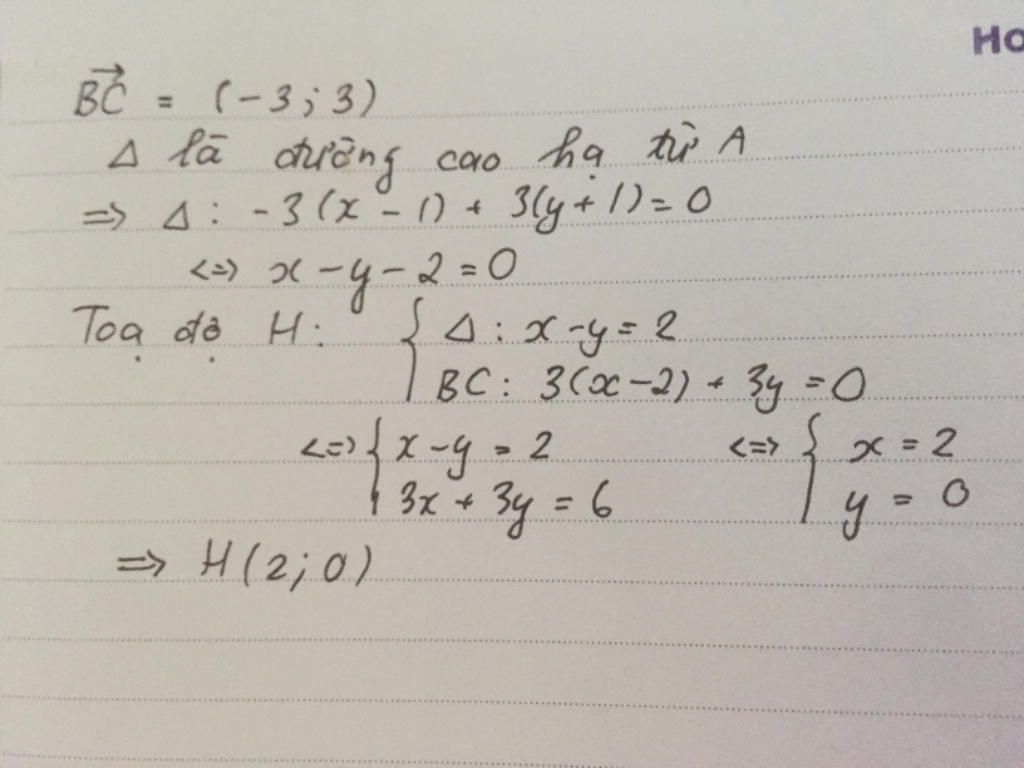 HO
\overrightarrow{BC} = (-3; 3)
Δ là đường cao hạ từ A
=> Δ: -3(x - 1) + 3(y + 1) = 0
<=> x - y - 2 = 0
Toạ độ H: { Δ: x - y = 2
BC: 3(x - 2) + 3y = 0
<=> { x - y = 2 <=> { x = 2
3x + 3y = 6 y = 0
=> H(2; 0)